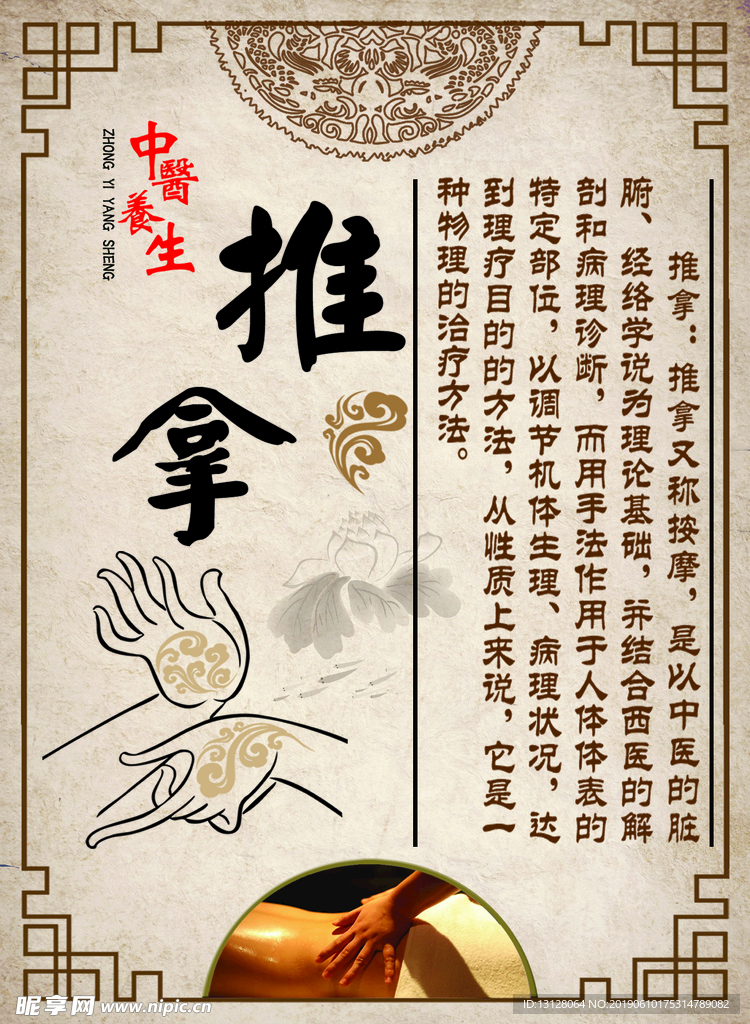 中醫養生
ZHONG YI YANG SHENG
推拿
推拿：推拿又称按摩，是以中医的脏
腑、经络学说为理论基础，并结合西医的解
剖和病理诊断，而用手法作用于人体体表的
特定部位，以调节机体生理、病理状况，达
到理疗目的的方法，从性质上来说，它是一
种物理的治疗方法。
昵享网 www.nipic.cn
ID:13128064 NO:20190610175314789082